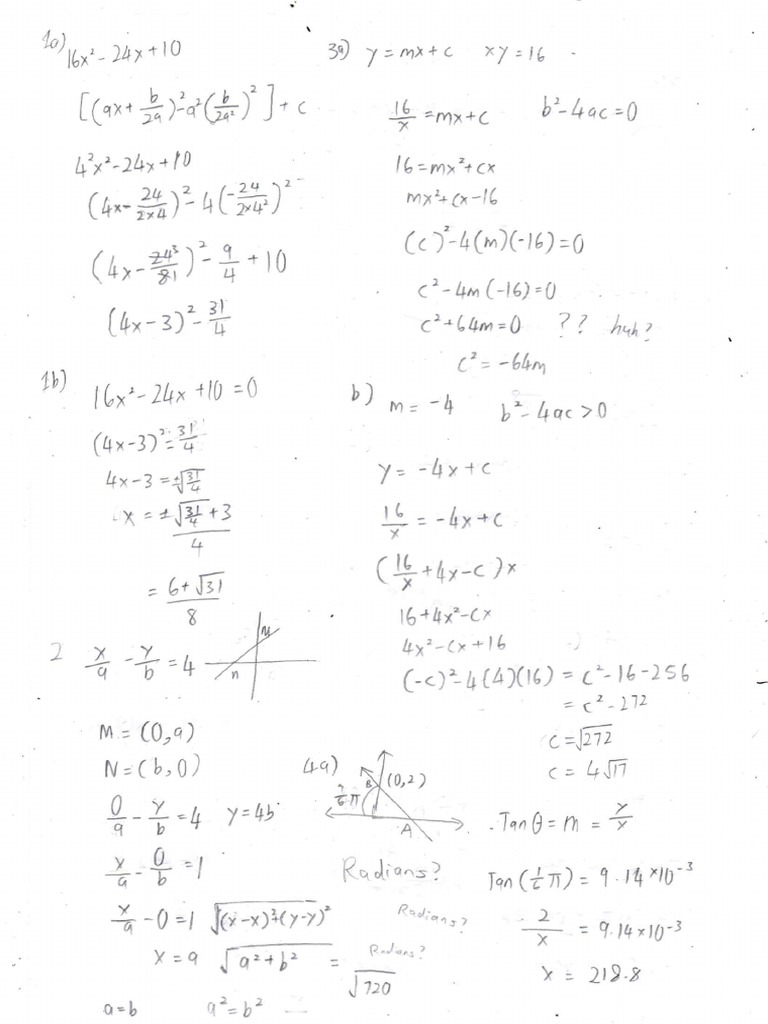 1a) 16x² - 24x + 10
[(ax + b/2a)² - a²(b/2a²)²] + c
4²x² - 24x + 10
(4x - 24/2×4)² - 4(-24/2×4²)²
(4x - 24³/81)² - 9/4 + 10
(4x - 3)² - 31/4
1b) 16x² - 24x + 10 = 0
(4x - 3)² = 31/4
4x - 3 = ±√31/4
x = ±√31/4 + 3 / 4
= 6 + √31 / 8
2 x/a - y/b = 4
n
M = (0,a)
N = (b,0)
0/a - y/b = 4 y = 4b
x/a - 0/b = 1
x/a - 0 = 1 √(x-x)²+(y-y)²
x = a √a²+b² = √720
a = b a² = b²
3a) y = mx + c xy = 16
16/x = mx + c b² - 4ac = 0
16 = mx² + cx
mx² + cx - 16
(c)² - 4(m)(-16) = 0
c² - 4m(-16) = 0
c² + 64m = 0 ?? huh?
c² = -64m
b) m = -4 b² - 4ac > 0
y = -4x + c
16/x = -4x + c
(16/x + 4x - c)x
16 + 4x² - cx
4x² - cx + 16
(-c)² - 4(4)(16) = c² - 16 - 256
= c² - 272
c = √272
c = 4√17
4a) B (0,2)
π
A
Radians?
Radians?
Radians?
Tan θ = m = y/x
Tan(1/6 π) = 9.14×10⁻³
2/x = 9.14×10⁻³
x = 218.8